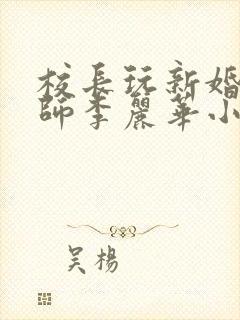 校長玩新婚
師李麗華小
吴楊